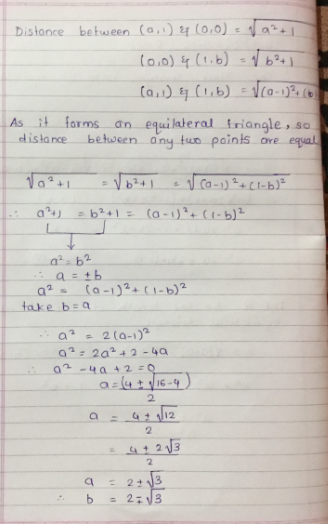 Distance between (a,1) & (0,0) = √a²+1
(0,0) & (1,b) = √b²+1
(a,1) & (1,b) = √(a-1)²+(
As it forms an equilateral triangle, so
distance between any two points are equal
√a²+1 = √b²+1 = √(a-1)²+(1-b)²
∴ a²+1 = b²+1 = (a-1)²+(1-b)²
a² = b²
∴ a = ±b
a² = (a-1)²+(1-b)²
take b=a
∴ a² = 2(a-1)²
a² = 2a²+2-4a
∴ a²-4a+2=0
a=(4±√16-4)
2
a = 4±√12
2
= 4±2√3
2
a = 2±√3
∴ b = 2∓√3